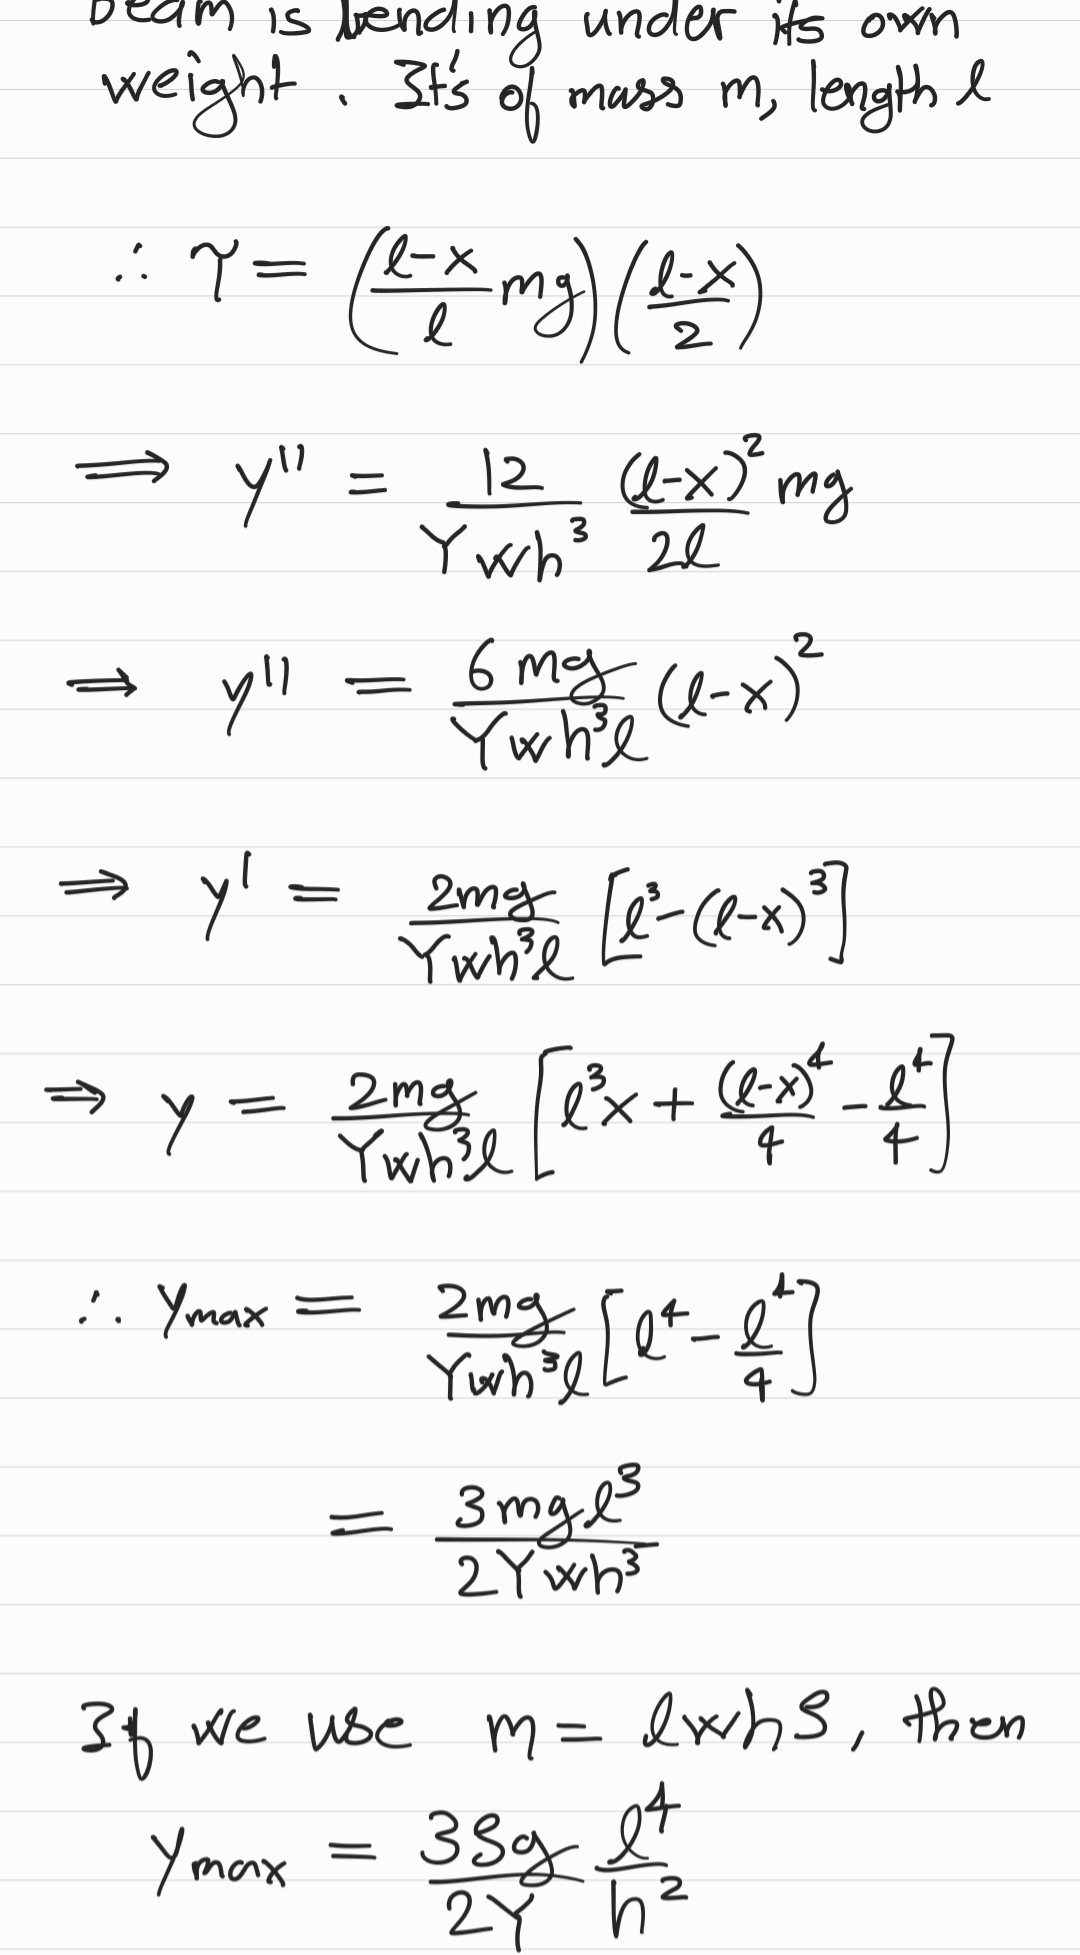 Beam is bending under its own
weight. It's of mass m, length l
∴ τ = ((l-x)/l mg)((l-x)/2)
⟹ y'' = 12/(Ywh³) (l-x)²/(2l) mg
⟹ y'' = 6mg/(Ywh³l) (l-x)²
⟹ y' = 2mg/(Ywh³l) [l³-(l-x)³]
⟹ y = 2mg/(Ywh³l) [l³x + (l-x)⁴/4 - l⁴/4]
∴ y_max = 2mg/(Ywh³l) [l⁴ - l⁴/4]
= 3mgl³/(2Ywh³)
If we use m = lwhρ, then
y_max = 3ρg/(2Y) l⁴/h²